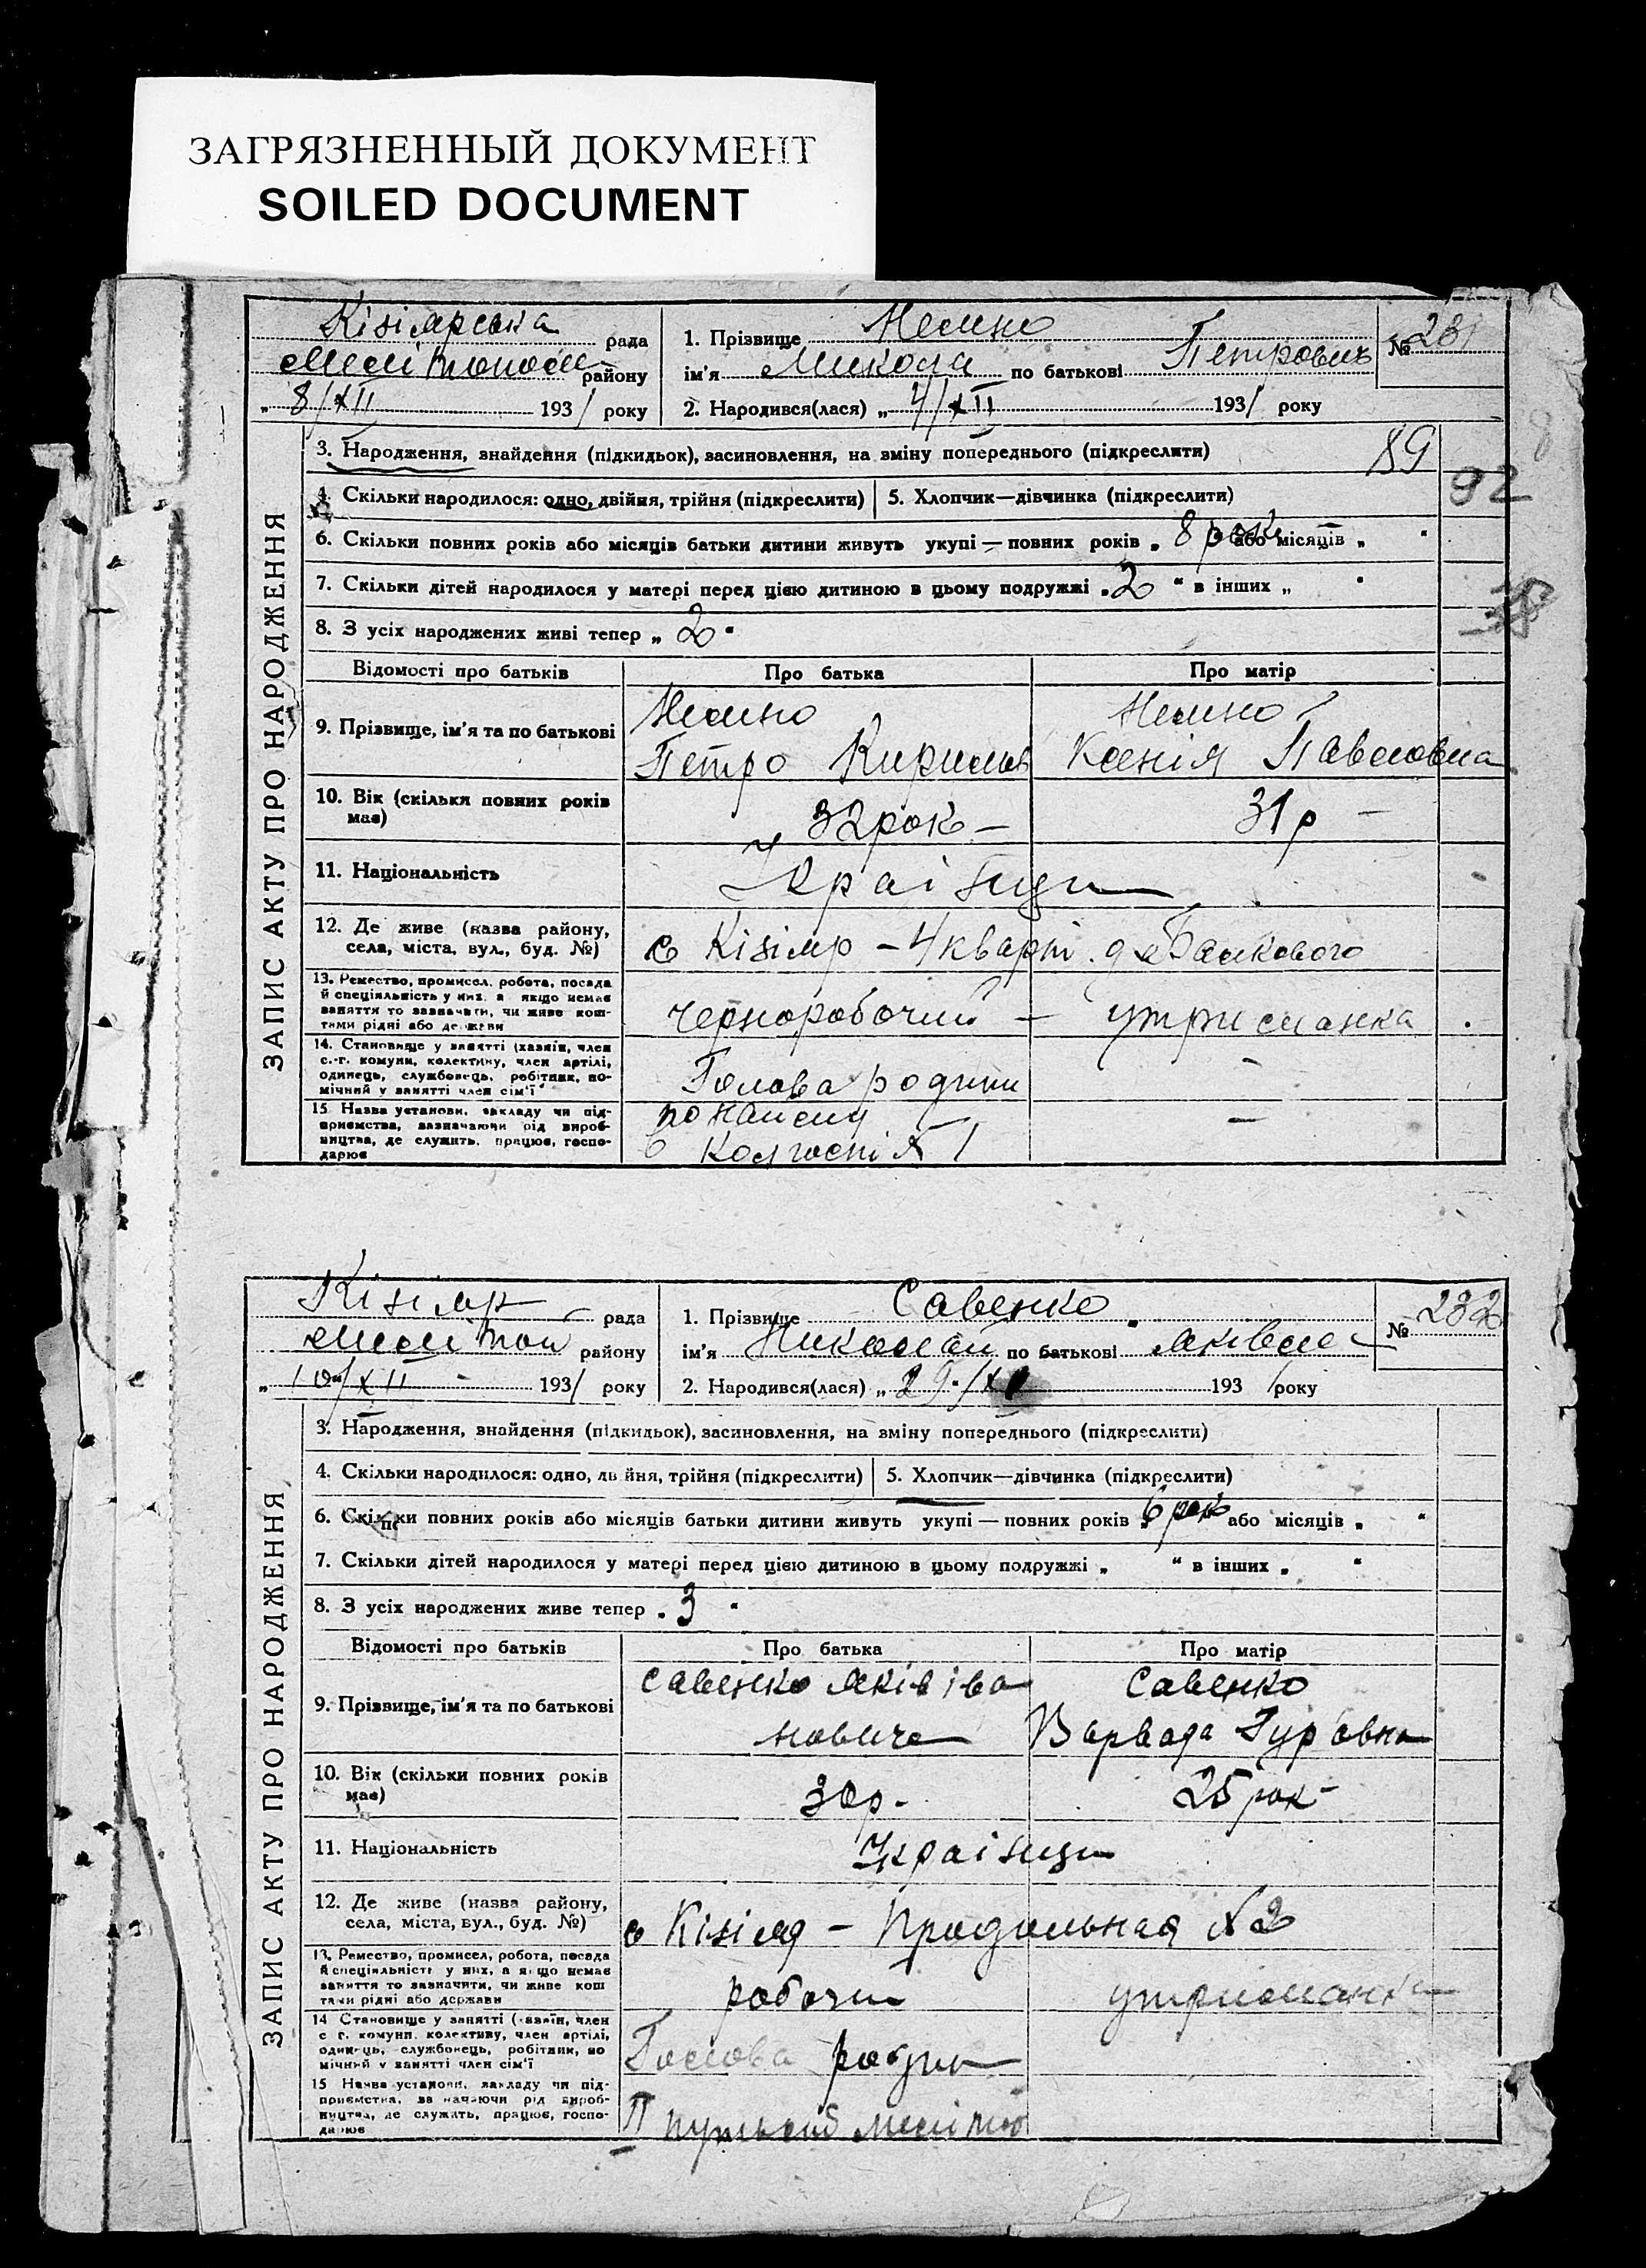 ЗАГРЯЗНЕННЫЙ ДОКУМЕНТ
SOILED DOCUMENT
Кізіярська рада
Мелітополь району
„ 8/XII 1931 року
1. Прізвище
ім'я Микола по батькові Петрович
№ 231
2. Народився(лася) „ 4/XII 1931 року
ЗАПИС АКТУ ПРО НАРОДЖЕННЯ
3. Народження, знайдення (підкидьок), засиновлення, на зміну попереднього (підкреслити)
89
92
4. Скільки народилося: одно, двійня, трійня (підкреслити)
5. Хлопчик—дівчинка (підкреслити)
6. Скільки повних років або місяців батьки дитини живуть укупі — повних років „ 8 рок або місяців „ "
7. Скільки дітей народилося у матері перед цією дитиною в цьому подружжі „ 2 " в інших „ "
8. З усіх народжених живі тепер „ 2 "
38
Відомості про батьків
Про батька
Про матір
9. Прізвище, ім'я та по батькові
Петро Кирилов
Ксенія Павловна
10. Вік (скільки повних років має)
32 рок –
31 р –
11. Національність
Українци
12. Де живе (назва району,
села, міста, вул., буд. №)
с Кізіяр – 4 кварт.
13. Ремество, промисел, робота, посада
й спеціяльність у них, а якщо немає
заняття то зазначити, чи живе кош-
тами рідні або держави
чернорабочий – утриманка
14. Становище у занятті (хазяїн, член
с.-г. комуни, колективу, член артілі,
одинець, службовець, робітник, по-
мічний у занятті член сім'ї
Голова родини
–
15 Назва установи, закладу чи під-
приємства, зазначаючи рід вироб-
ництва, де служить, працює, госпо-
дарює
по найму
в Колгоспі № 1
–
Кізіяр рада
Мелітоп району
„ 10/XII 1931 року
1. Прізвище Савенко
ім'я Николай по батькові Яківле
№ 232
2. Народився(лася) „ 29/XI 1931 року
ЗАПИС АКТУ ПРО НАРОДЖЕННЯ
3. Народження, знайдення (підкидьок), засиновлення, на зміну попереднього (підкреслити)
4. Скільки народилося: одно, двійня, трійня (підкреслити)
5. Хлопчик—дівчинка (підкреслити)
6. Скільки повних років або місяців батьки дитини живуть укупі — повних років „ 6 рок або місяців „ "
7. Скільки дітей народилося у матері перед цією дитиною в цьому подружжі „ " в інших „ "
8. З усіх народжених живе тепер „ 3 "
Відомості про батьків
Про батька
Про матір
9. Прізвище, ім'я та по батькові
Савенко Яків Іва
новиче
Савенко
Варвара Гур'овна
10. Вік (скільки повних років має)
30 р.
25 рок
11. Національність
Українци
12. Де живе (назва району,
села, міста, вул., буд. №)
с Кізіяр – Продольная № 2
13. Ремество, промисел, робота, посада
й спеціяльність у них, а якщо немає
заняття то зазначити, чи живе кош
тами рідні або держави
робочи
утриманка
14 Становище у занятті (хазяїн, член
с г. комуни, колективу, член артілі,
одинець, службовець, робітник, по
мічний у занятті член сім'ї
Голова родин
15 Назва установи, закладу чи під-
приємства, зазначаючи рід вироб-
ництва, де служить, працює, госпо-
дарює